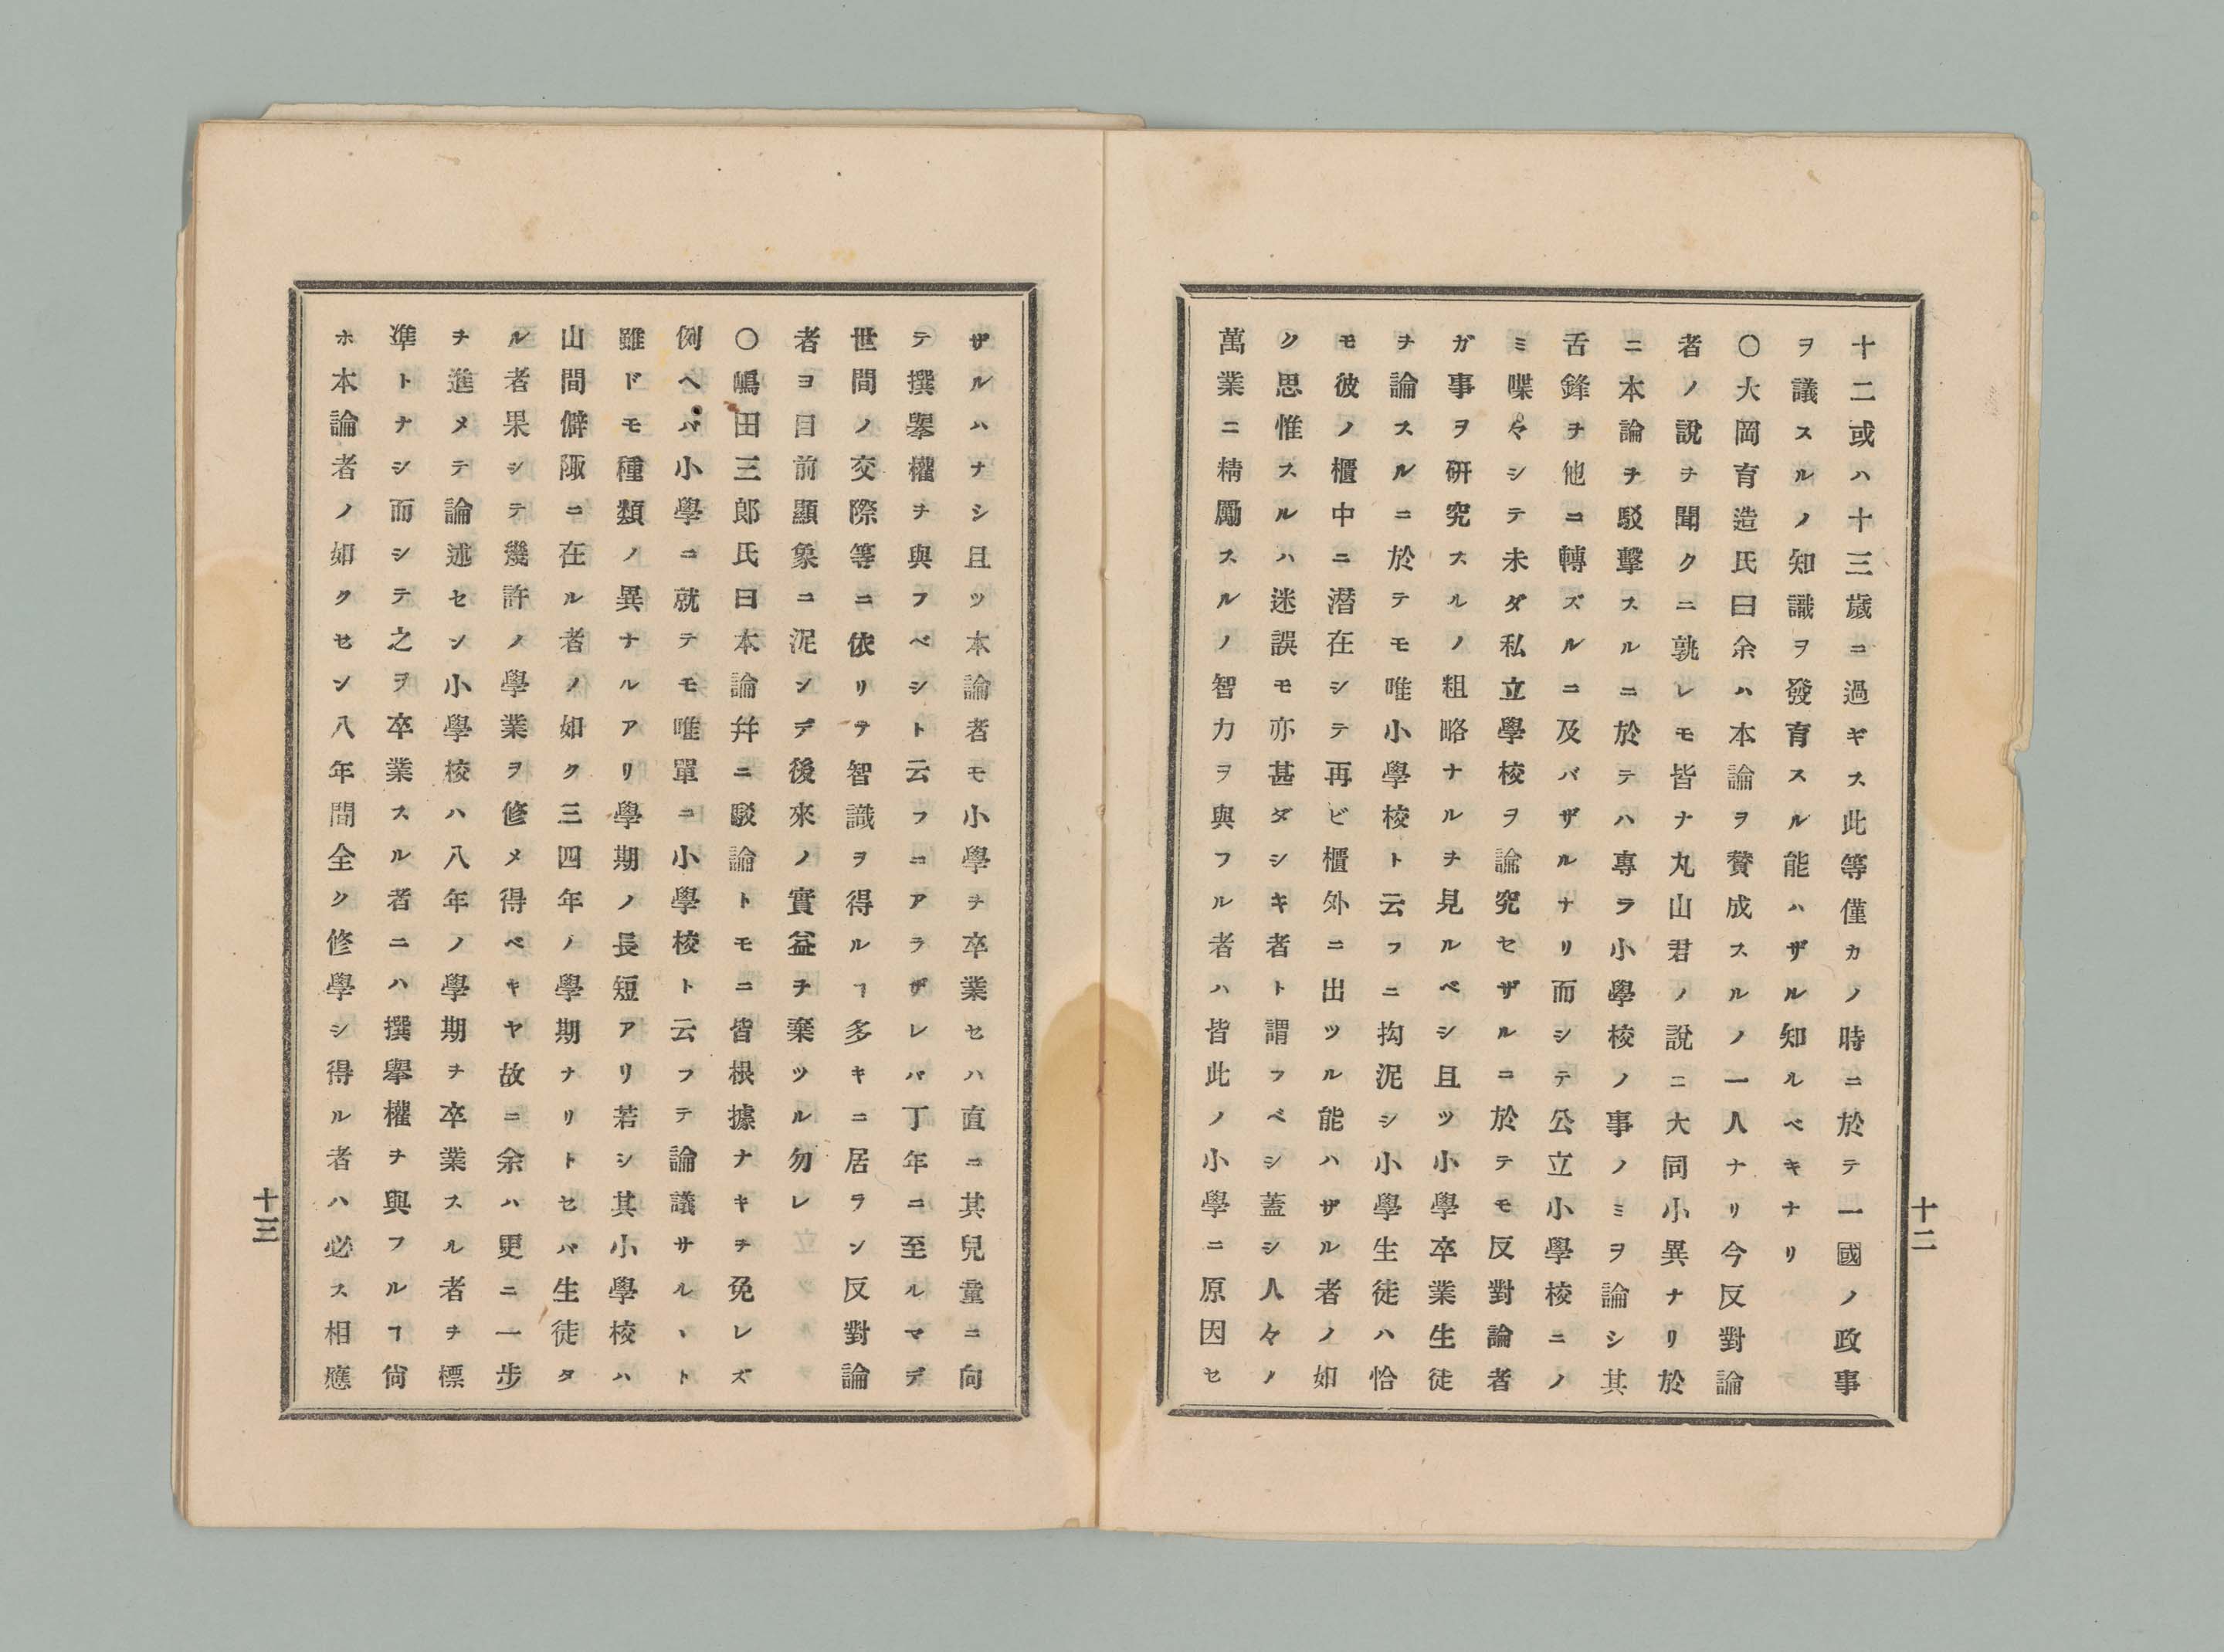 十二或ハ十三歲ニ過ギス此等僅カノ時ニ於テ一國ノ政事
ヲ議スルノ知識ヲ發育スル能ハザル知ルベキナリ
〇大岡育造氏曰余ハ本論ヲ賛成スルノ一人ナリ今反對論
者ノ說ヲ聞クニ孰レモ皆ナ丸山君ノ說ニ大同小異ナリ於
ニ本論ヲ駁擊スルニ於テハ專ラ小學校ノ事ノミヲ論シ其
舌鋒ヲ他ニ轉ズルニ及バザルナリ而シテ公立小學校ニノ
ミ喋々シテ未ダ私立學校ヲ論究セザルニ於テモ反對論者
ガ事ヲ硏究スルノ粗略ナルヲ見ルベシ且ツ小學卒業生徒
ヲ論スルニ於テモ唯小學校ト云フニ拘泥シ小學生徒ハ恰
モ彼ノ櫃中ニ潜在シテ再ビ櫃外ニ出ツル能ハザル者ノ如
ク思惟スルハ迷誤モ亦甚ダシキ者ト謂フベシ蓋シ人々ノ
萬業ニ精勵スルノ智力ヲ與フル者ハ皆此ノ小學ニ原因セ
十二
ザルハナシ且ツ本論者モ小學ヲ卒業セハ直ニ其兒童ニ向
テ撰擧權ヲ與フベシト云フニアラザレバ丁年ニ至ルマデ
世間ノ交際等ニ依リテ智識ヲ得ルヿ多キニ居ラン反對論
者ヨ目前顯象ニ泥ンデ後來ノ實益ヲ棄ツル勿レ
〇嶋田三郎氏曰本論幷ニ駁論トモニ皆根據ナキヲ免レズ
例ヘバ小學ニ就テモ唯單ニ小學校ト云フテ論議サルヽト
雖ドモ種類ノ異ナルアリ學期ノ長短アリ若シ其小學校ハ
山間僻陬ニ在ル者ノ如ク三四年ノ學期ナリトセバ生徒タ
ル者果シテ幾許ノ學業ヲ修メ得ベキヤ故ニ余ハ更ニ一步
ヲ進メテ論述セン小學校ハ八年ノ學期ヲ卒業スル者ヲ標
準トナシ而シテ之ヲ卒業スル者ニハ撰擧權ヲ與フルヿ尙
ホ本論者ノ如クセン八年間全ク修學シ得ル者ハ必ス相應
十三